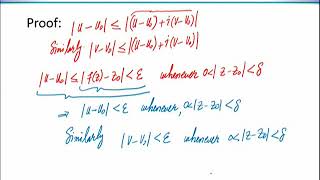 Proof: |u-u₀| ≤ |(u-u₀)+i(v-v₀)|
Similarly |v-v₀| ≤ |(u-u₀)+i(v-v₀)|
|u-u₀| ≤ |f(z)-z₀| < ε whenever 0<|z-z₀|<δ
⇒ |u-u₀| < ε whenever, 0<|z-z₀|<δ
Similarly |v-v₀| < ε whenever 0<|z-z₀|<δ